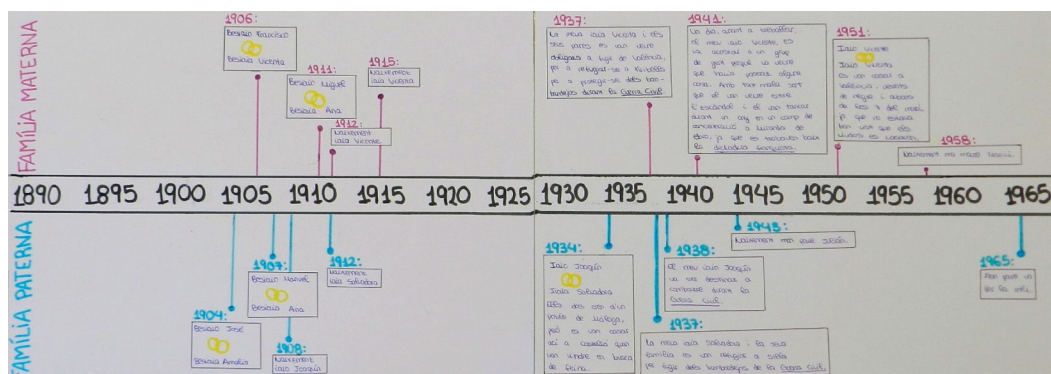 FAMÍLIA MATERNA
1906:
Besiaio Francisco
Besiaia Vicenta
1911:
Besiaio Miguel
Besiaia Ana
1912:
Naixement
iaio Vicente
1915:
Naixement
iaia Vicenta
1937:
La meua iaia Vicenta i els
seus pares es van veure
obligats a fugir de València,
per a refugiar-se a
per a protegir-se dels bom-
bardejos durant la Guerra Civil.
1941:
Un dia, anant a treballar,
el meu iaio Vicente, es
va acostar a un grup
de gent perquè va veure
que havia passat alguna
cosa. Amb tan mala sort
que el van veure entre
l'escàndol i el van tancar
durant un any en un camp de
concentració a Miranda de
Ebro, ja que es trobaven baix
la dictadura franquista.
1951:
Iaio Vicente
Iaia Vicenta
es van casar a
València, vestits
de negre i
ja que no estava
ben vist que els
viudos es casaren.
1958:
Naixement ma mare
1890 1895 1900 1905 1910 1915 1920 1925 1930 1935 1940 1945 1950 1955 1960 1965
FAMÍLIA PATERNA
1904:
Besiaio José
Besiaia Amalia
1907:
Besiaio Manuel
Besiaia Ana
1908:
Naixement
iaio Joaquín
1912:
Naixement
iaia Salvadora
1934:
Iaio Joaquín
Iaia Salvadora
Ells dos són d'un
poble de Màlaga,
però es van casar
ací a
van vindre en busca
de feina.
1937:
La meua iaia Salvadora i la seua
família es van refugiar a
per fugir dels bombardejos de la Guerra Civil.
1938:
El meu iaio Joaquín
va ser destinat a
combatre durant la
Guerra Civil.
1943:
Naixement mon pare
1965:
Mon pare va
fer la mili.